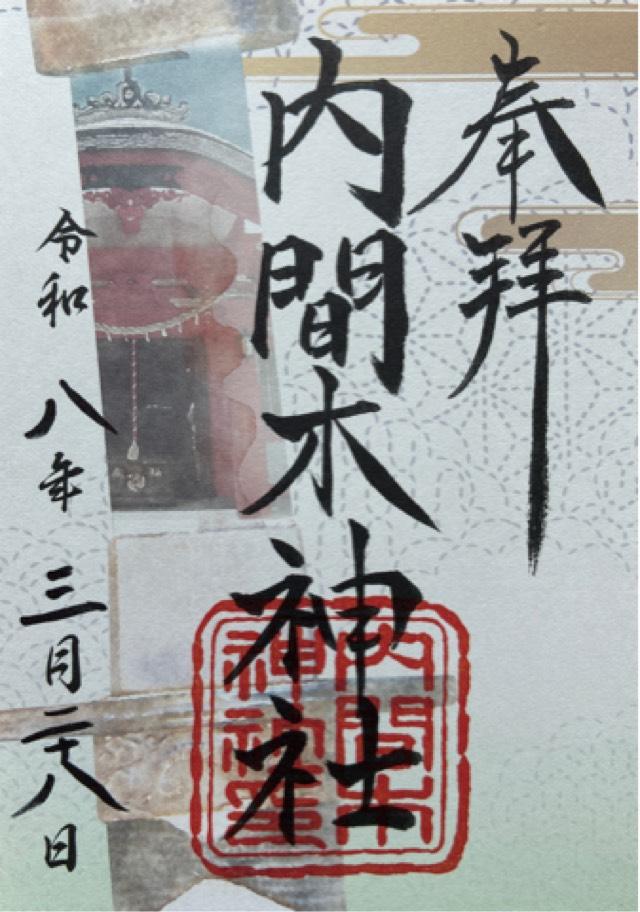 奉拝
内間木神社
令和八年三月二十八日
内間木
神社